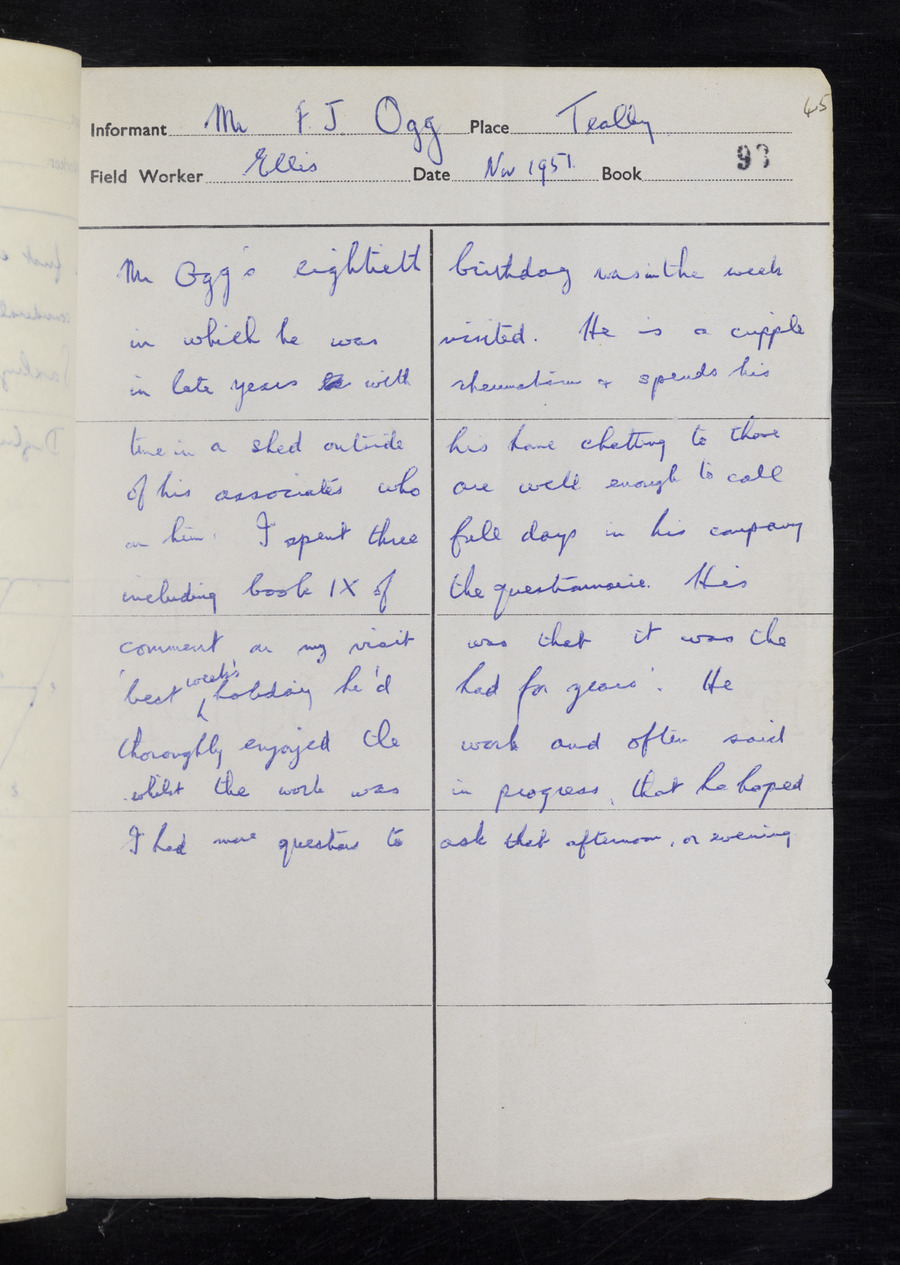 45
Informant Mr F. J Ogg Place Tealby
Field Worker Ellis Date Nov 1951. Book 93
Mr Ogg's eightieth birthday was in the week
in which he was visited. He is a cripple
in late years with rheumatism & spends his
time in a shed outside his home chatting to those
of his associates who are well enough to call
on him. I spent three full days in his company
including book IX of the questionnaire. His
comment on my visit was that it was the
'best week's holiday he'd had for years'. He
thoroughly enjoyed the work and often said
whilst the work was in progress, that he hoped
I had more questions to ask that afternoon, or evening